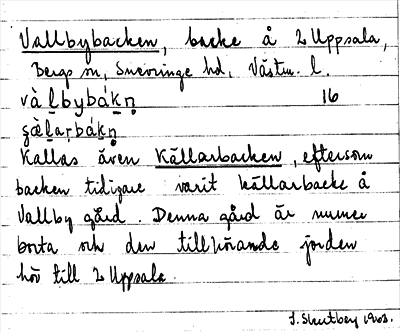 Vallbybacken, backe å 2 Uppsala,
Bergs sn, Snevringe hd, Västm. l.
va᷆ ḷbybákn̥ 16
ɕæ̀ḷarbákn̥
Kallas även Källarbacken, eftersom
backen tidigare varit källarbacke å
Vallby gård. Denna gård är numer
borta och den tillhörande jorden
hör till 2 Uppsala.
1963.